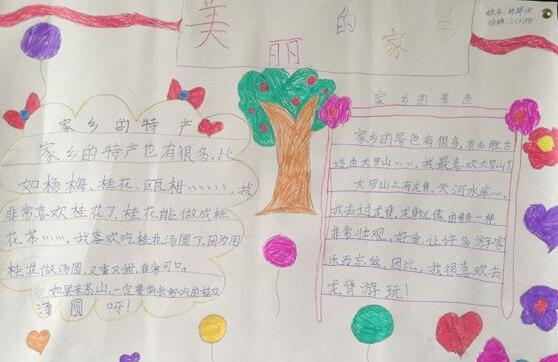 美丽的家乡
家乡的特产
家乡的特产也有很多,比
如杨梅、桂花、瓯柑……,我
非常喜欢桂花了,桂花能做成桂
花茶……,我喜欢吃桂花汤圆了,因为用
桂花做汤圆,又香又甜,非常可口。
如果来茶山,一定要尝尝好吃的桂花
汤圆呀!
家乡的景色
家乡的景色有很多,有名胜古
迹大罗山……,我最喜欢大罗山了
大罗山上有龙脊、天河水库……,
我去过龙脊,龙脊
非常壮观、好奇,让许多游客
乐而忘返,因此,我很喜欢去
龙脊游玩!